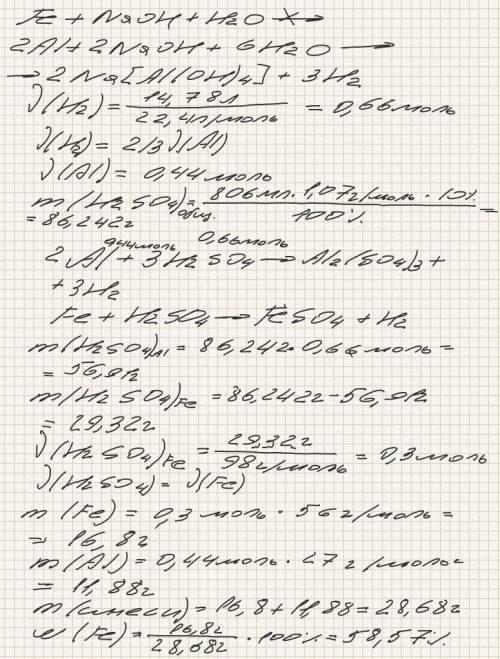 Fe + NaOH + H2O -X->
2Al + 2NaOH + 6H2O ⟶
→ 2Na[Al(OH)4] + 3H2
ν(H2) = 14,78л / 22,4л/моль = 0,66моль
ν(H2) = 2/3 ν(Al)
ν(Al) = 0,44моль
m(H2SO4)общ. = 806мл · 1,07г/моль · 10% / 100% =
= 86,242г
0,44моль 0,66моль
2Al + 3H2SO4 → Al2(SO4)3 +
+ 3H2
Fe + H2SO4 → FeSO4 + H2
m(H2SO4)Al = 86,242 · 0,66моль =
= 56,92г
m(H2SO4)Fe = 86,242г - 56,92г
= 29,32г
ν(H2SO4)Fe = 29,32г / 98г/моль = 0,3моль
ν(H2SO4) = ν(Fe)
m(Fe) = 0,3 моль · 56 г/моль =
= 16,8г
m(Al) = 0,44моль · 27 г/моль =
= 11,88г
m(смеси) = 16,8 + 11,88 = 28,68г
w(Fe) = 16,8г / 28,68г · 100% = 58,57%